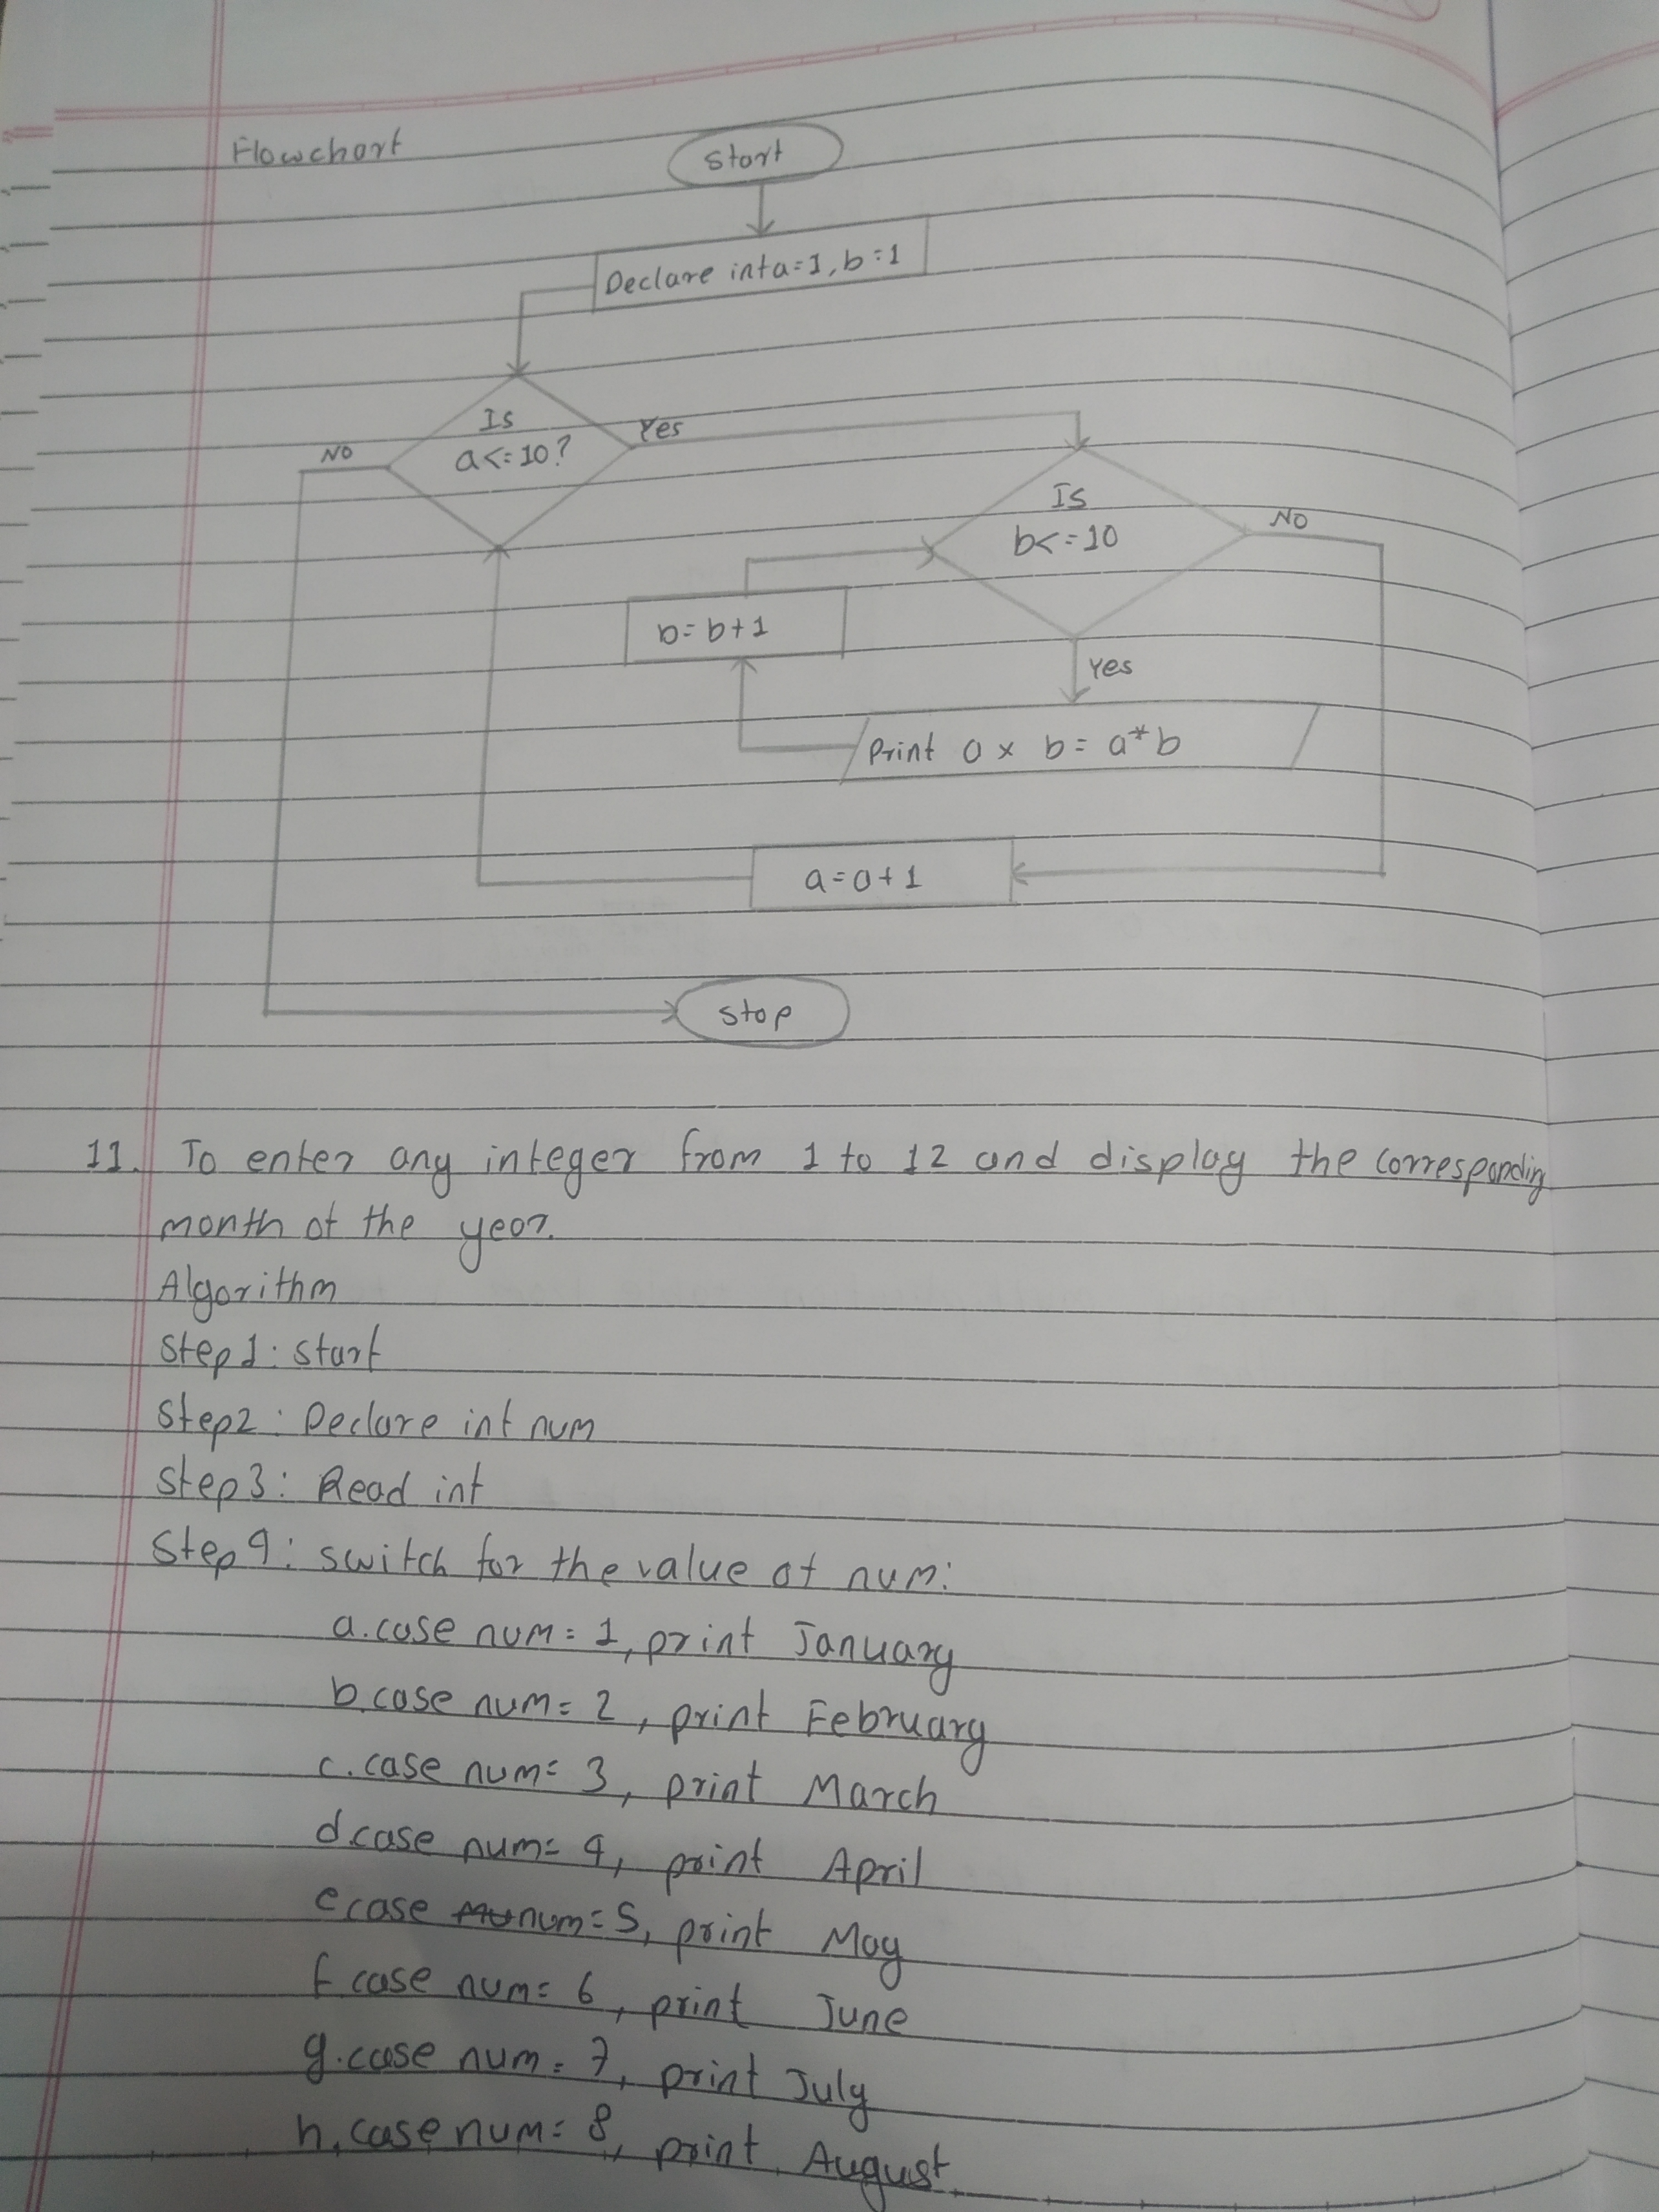 Flowchart
Start
Declare int a=1, b=1
Is
a<=10?
NO
Yes
Is
b<=10
NO
b=b+1
Yes
Print a x b = a*b
a=a+1
Stop
11. To enter any integer from 1 to 12 and display the corresponding
month of the year.
Algorithm
Step1: Start
Step2: Declare int num
Step3: Read int
Step4: switch for the value of num:
a. case num = 1, print January
b. case num = 2, print February
c. case num = 3, print March
d. case num = 4, print April
e case num = 5, print May
f case num = 6, print June
g. case num = 7, print July
h. case num = 8, print August